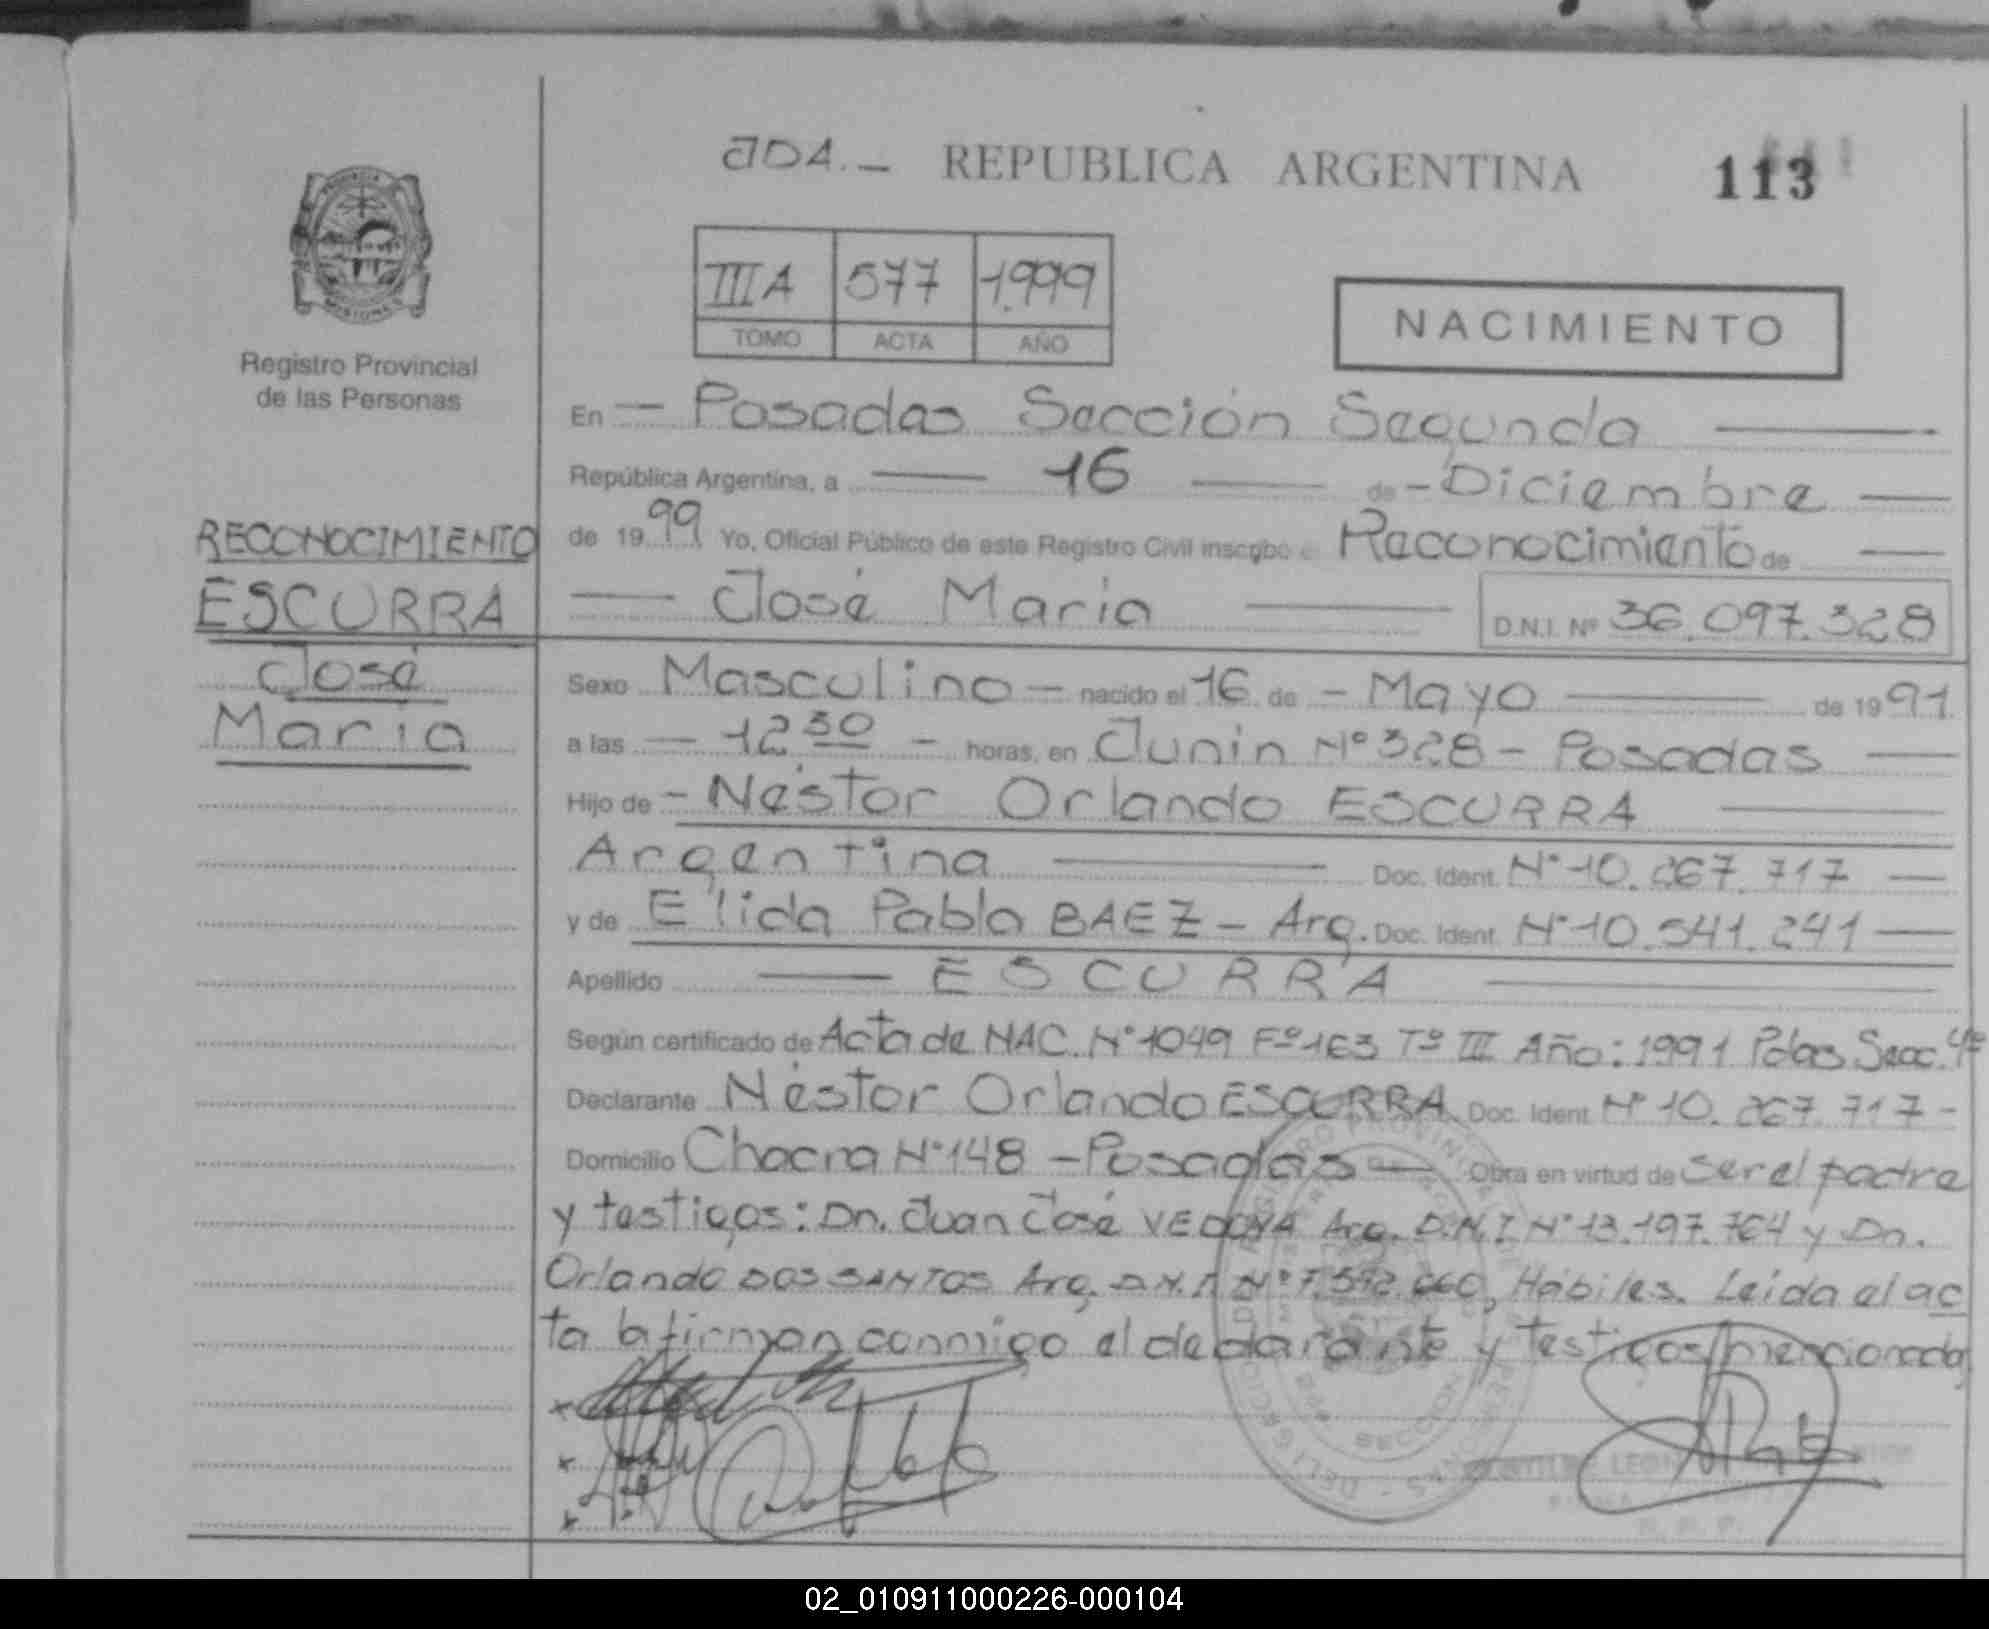 JDA.- REPUBLICA ARGENTINA 113
IIIA 577 1.999
TOMO ACTA AÑO
NACIMIENTO
Registro Provincial
de las Personas
En - Posadas Sección Segunda
República Argentina, a 16 de - Diciembre
de 1999 Yo, Oficial Público de este Registro Civil inscribo Reconocimiento de
José María D.N.I. Nº 36.097.328
RECONOCIMIENTO
ESCURRA
José
María
Sexo Masculino - nacido el 16 de - Mayo de 1991
a las - 12 30 - horas, en Junín Nº 328 - Posadas
Hijo de - Néstor Orlando ESCURRA
Argentina Doc. Ident. Nº 10.267.717
y de Elida Pabla BAEZ - Arg. Doc. Ident. Nº 10.541.241
Apellido ESCURRA
Según certificado de Acta de NAC. Nº 1049 Fº 163 Tº III Año: 1991 Pdas Secc. 4ª
Declarante Néstor Orlando ESCURRA Doc. Ident Nº 10.267.717-
Domicilio Chacra Nº 148 - Posadas - Obra en virtud de ser el padre
y testigos: Dn. Juan José VEDOYA Arg. D.N.I Nº 13.197.764 y Dn.
Orlando DOS SANTOS Arg. D.N.I. Nº 7.592.660, Hábiles. Leída el ac
ta la firman conmigo el declarante y testigos mencionados
02_010911000226-000104